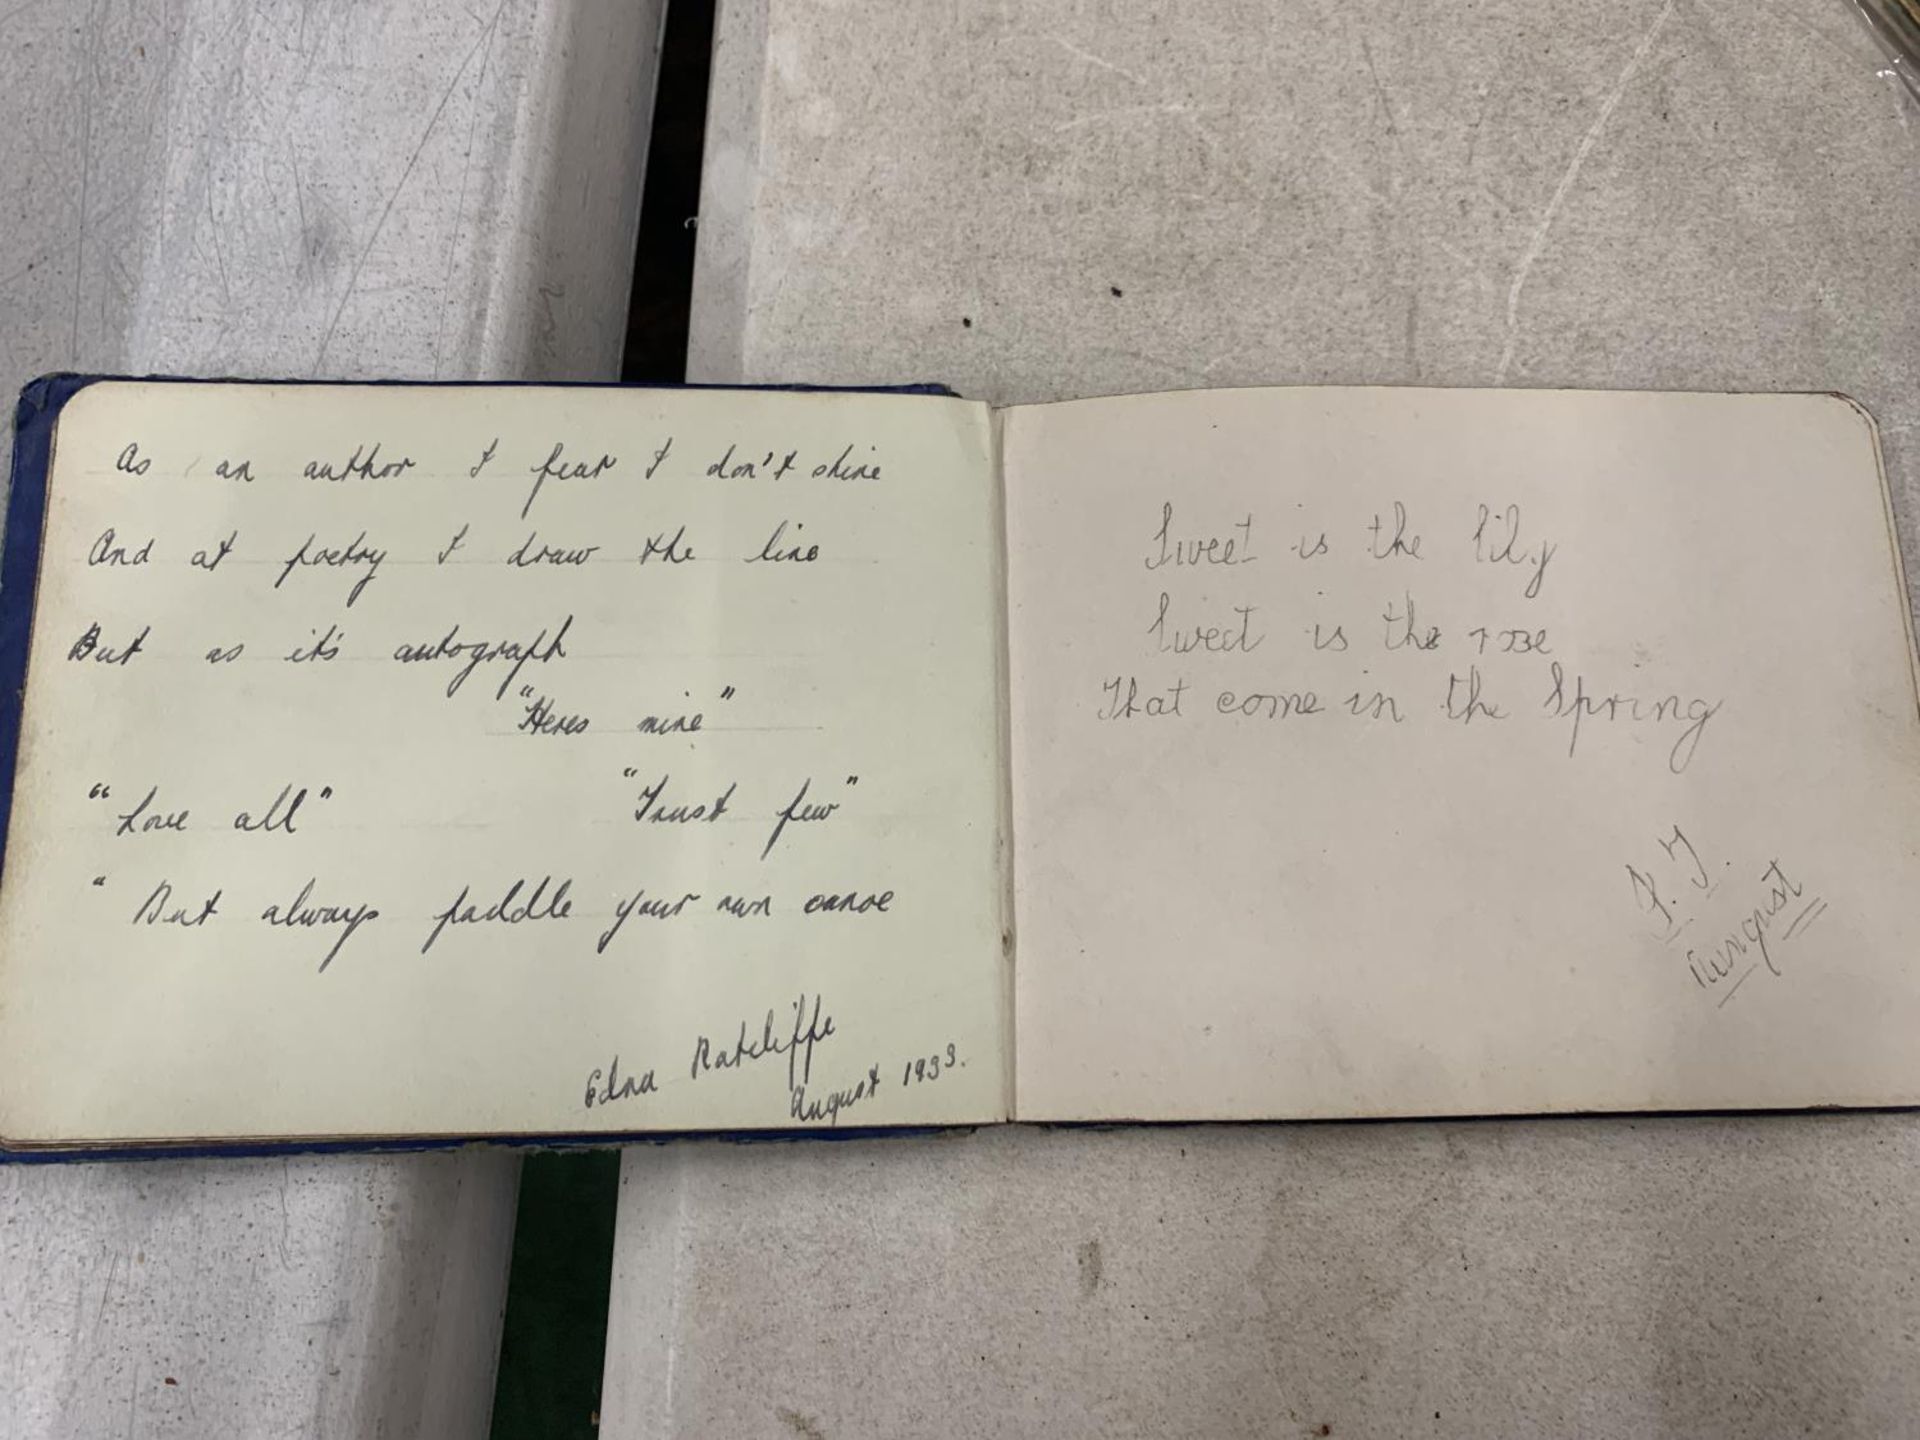 As an author I fear I don't shine
And at poetry I draw the line
But as it's autograph
"Heres mine"
"Love all" "Trust few"
" But always paddle your own canoe
Edna Ratcliffe
August 1933.
Sweet is the lily
Sweet is the rose
That come in the Spring
August